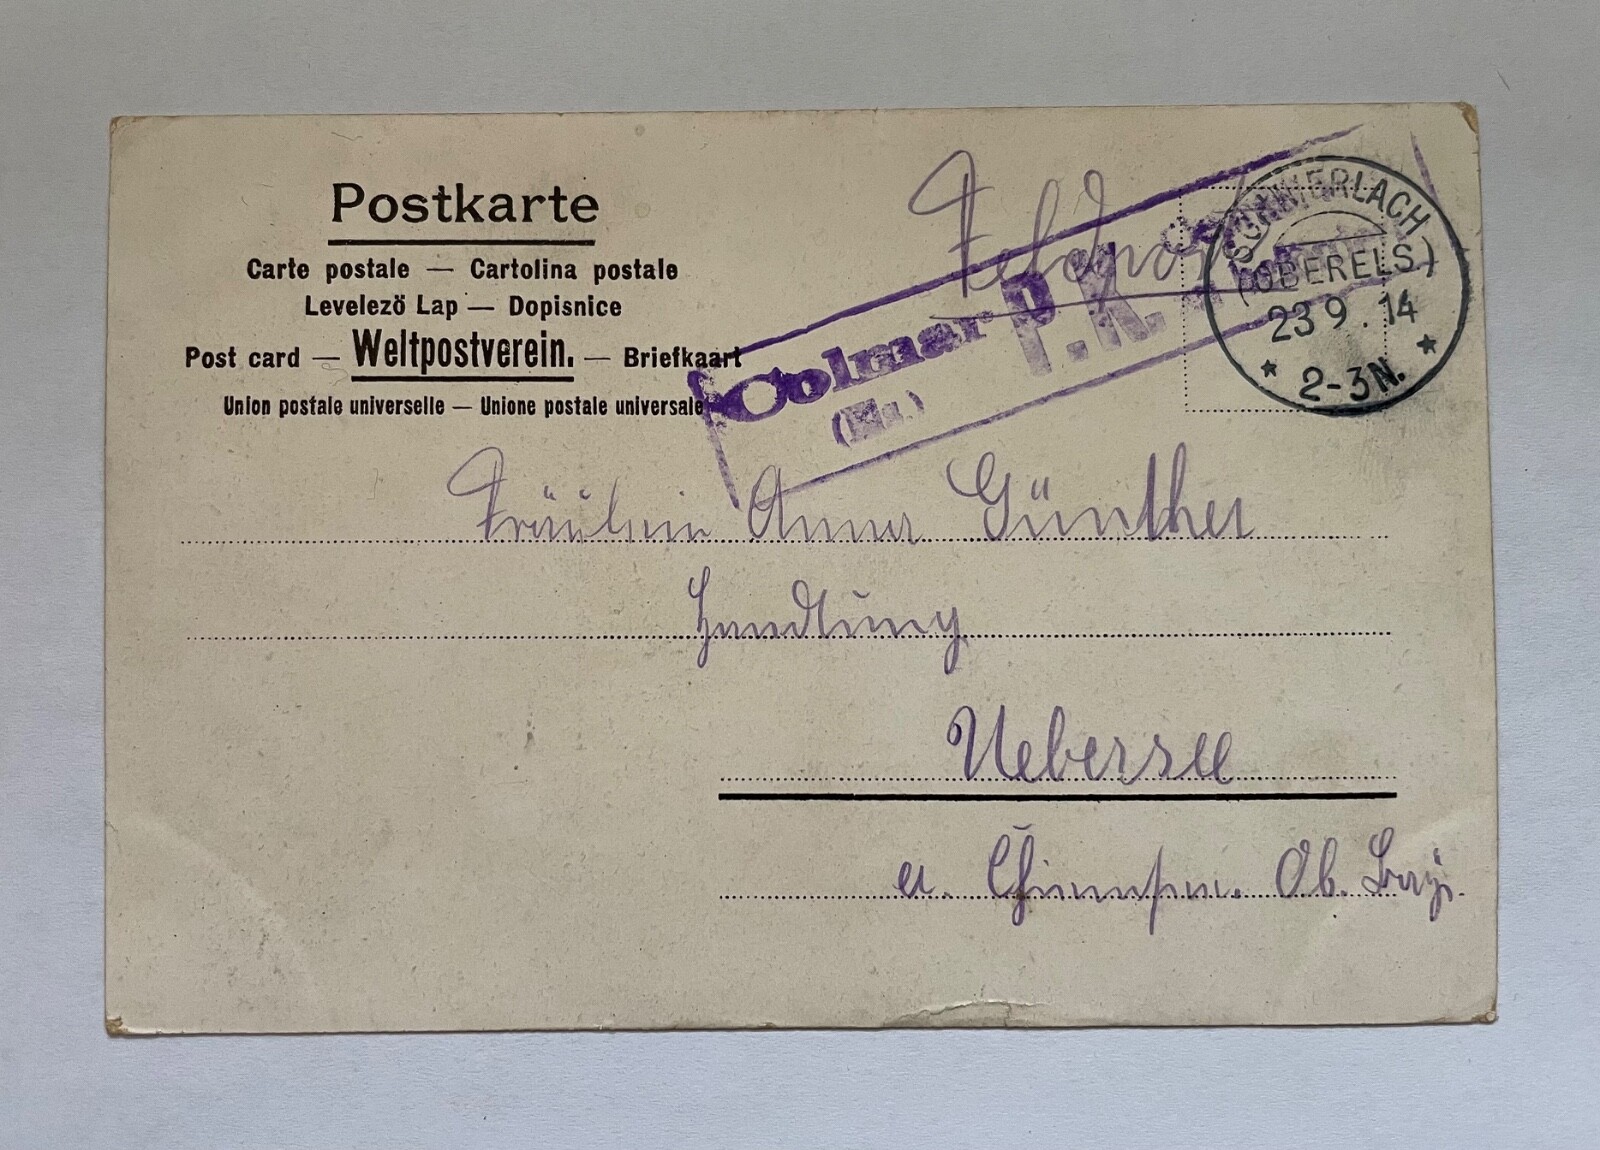 Postkarte
Carte postale — Cartolina postale
Levelezö Lap — Dopisnice
Post card — Weltpostverein. — Briefkaart
Union postale universelle — Unione postale universale
Feldpost
Colmar P.K.
(Els.)
SCHNIERLACH
(OBERELS.)
23 9. 14
* 2-3N. *
Fräulein Anna Günther
Handlung
Uebersee
a. Chiemsee. Ob. Bay.